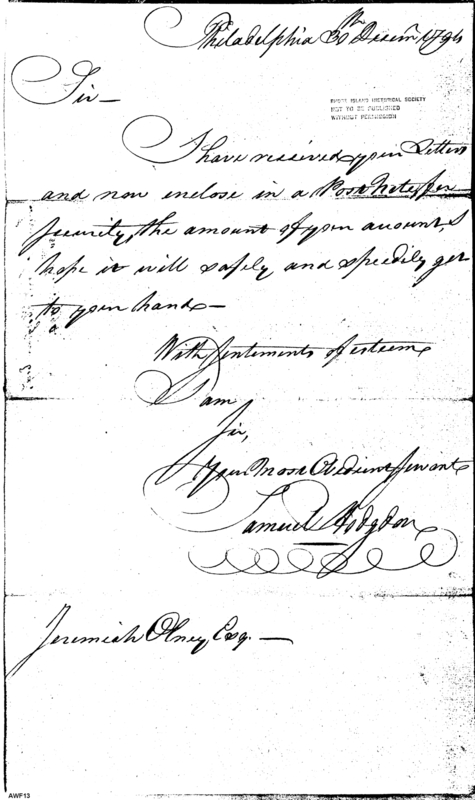 Philadelphia 30th Decem 1794
Sir—
RHODE ISLAND HISTORICAL SOCIETY
NOT TO BE PUBLISHED
WITHOUT PERMISSION
I have received your Letters
and now enclose in a Post Note, for
security, the amount of your account, I
hope it will safely and speedily get
to your hands—
With Sentiments of esteem
I am
Sir,
Your Most Obedient Servant
Samuel Hodgdon
Jeremiah Olney, Esq. —
AWF13